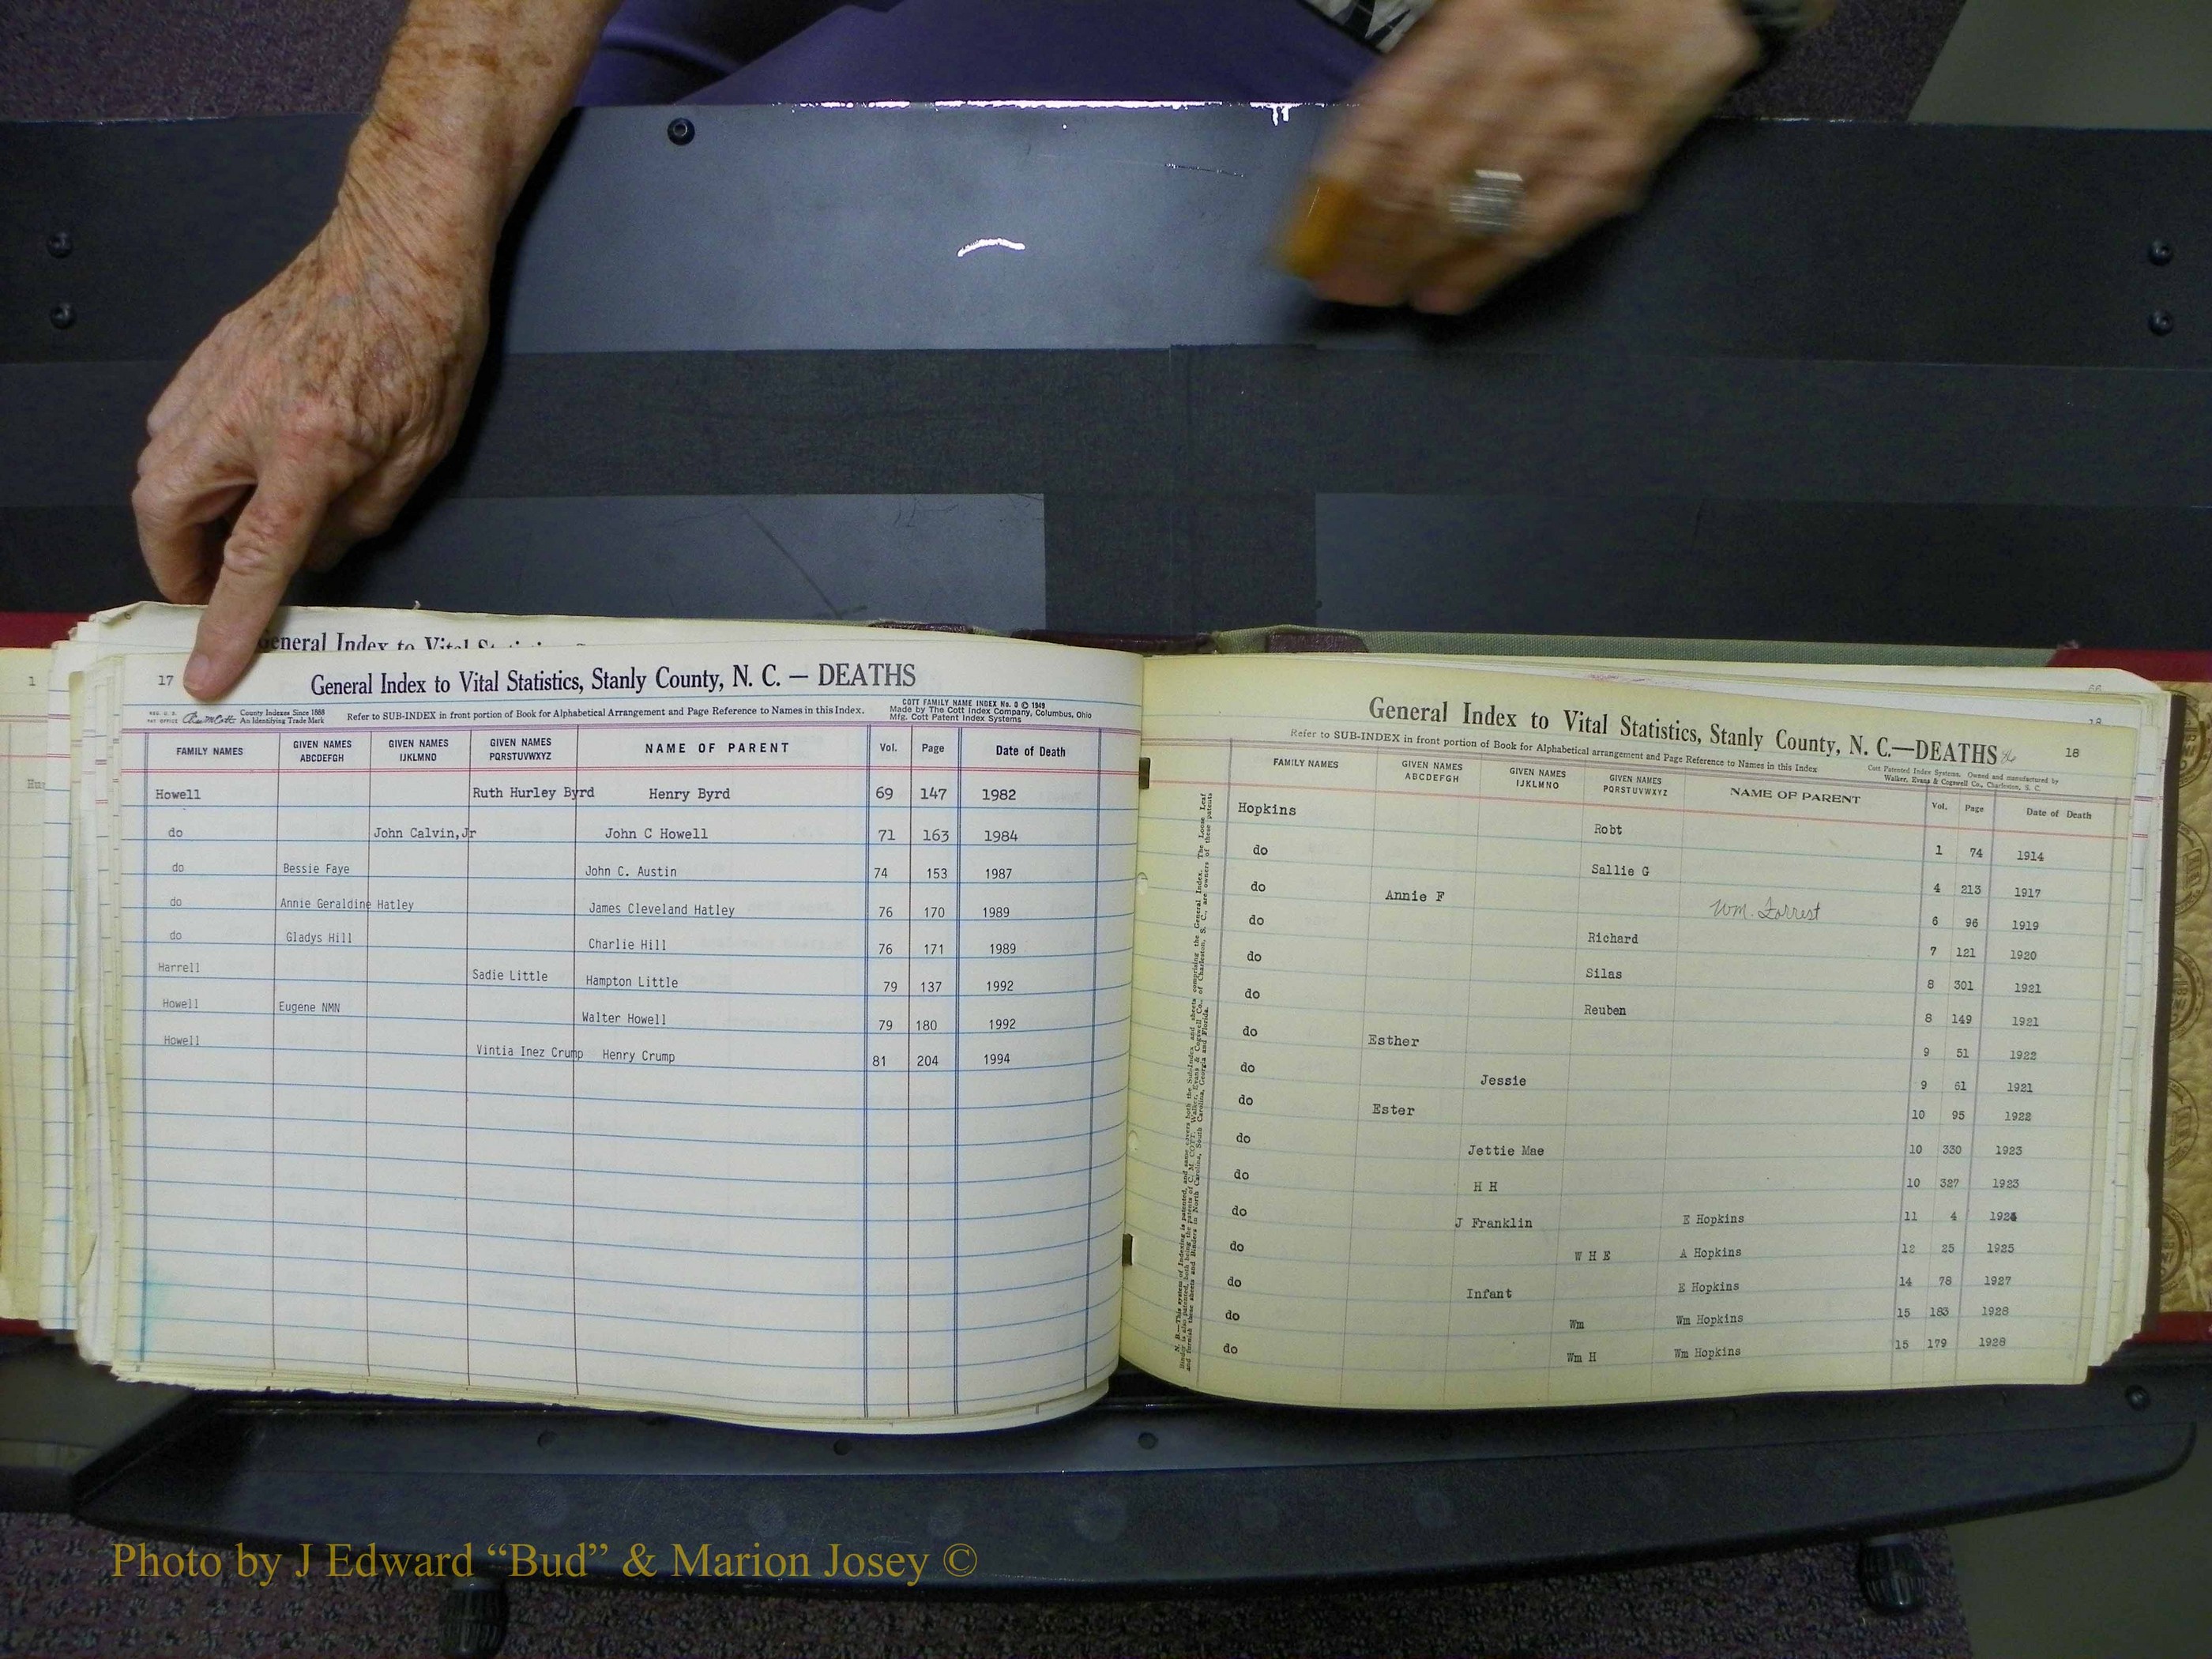 General Index to Vital Statistics
17
General Index to Vital Statistics, Stanly County, N. C. — DEATHS
County Indexes Since 1888
An Identifying Trade Mark
Refer to SUB-INDEX in front portion of Book for Alphabetical Arrangement and Page Reference to Names in this Index.
COTT FAMILY NAME INDEX No. 0 © 1949
Made by The Cott Index Company, Columbus, Ohio
Mfg. Cott Patent Index Systems
FAMILY NAMES GIVEN NAMES ABCDEFGH GIVEN NAMES IJKLMNO GIVEN NAMES PQRSTUVWXYZ NAME OF PARENT Vol. Page Date of Death
Howell Ruth Hurley Byrd Henry Byrd 69 147 1982
do John Calvin,Jr John C Howell 71 163 1984
do Bessie Faye John C. Austin 74 153 1987
do Annie Geraldine Hatley James Cleveland Hatley 76 170 1989
do Gladys Hill Charlie Hill 76 171 1989
Harrell Sadie Little Hampton Little 79 137 1992
Howell Eugene NMN Walter Howell 79 180 1992
Howell Vintia Inez Crump Henry Crump 81 204 1994
General Index to Vital Statistics, Stanly County, N. C.—DEATHS
18
Refer to SUB-INDEX in front portion of Book for Alphabetical arrangement and Page Reference to Names in this Index
Cott Patented Index Systems, Owned and manufactured by
Walker, Evans & Cogswell Co., Charleston, S. C.
FAMILY NAMES GIVEN NAMES ABCDEFGH GIVEN NAMES IJKLMNO GIVEN NAMES PQRSTUVWXYZ NAME OF PARENT Vol. Page Date of Death
Hopkins Robt 1 74 1914
do Sallie G 4 213 1917
do Annie F Wm. Forrest 6 96 1919
do Richard 7 121 1920
do Silas 8 301 1921
do Reuben 8 149 1921
do Esther 9 51 1922
do Jessie 9 61 1921
do Ester 10 95 1922
do Jettie Mae 10 330 1923
do H H 10 327 1923
do J Franklin E Hopkins 11 4 1924
do W H E A Hopkins 12 25 1925
do Infant E Hopkins 14 78 1927
do Wm Wm Hopkins 15 183 1928
do Wm H Wm Hopkins 15 179 1928
Photo by J Edward “Bud” & Marion Josey ©